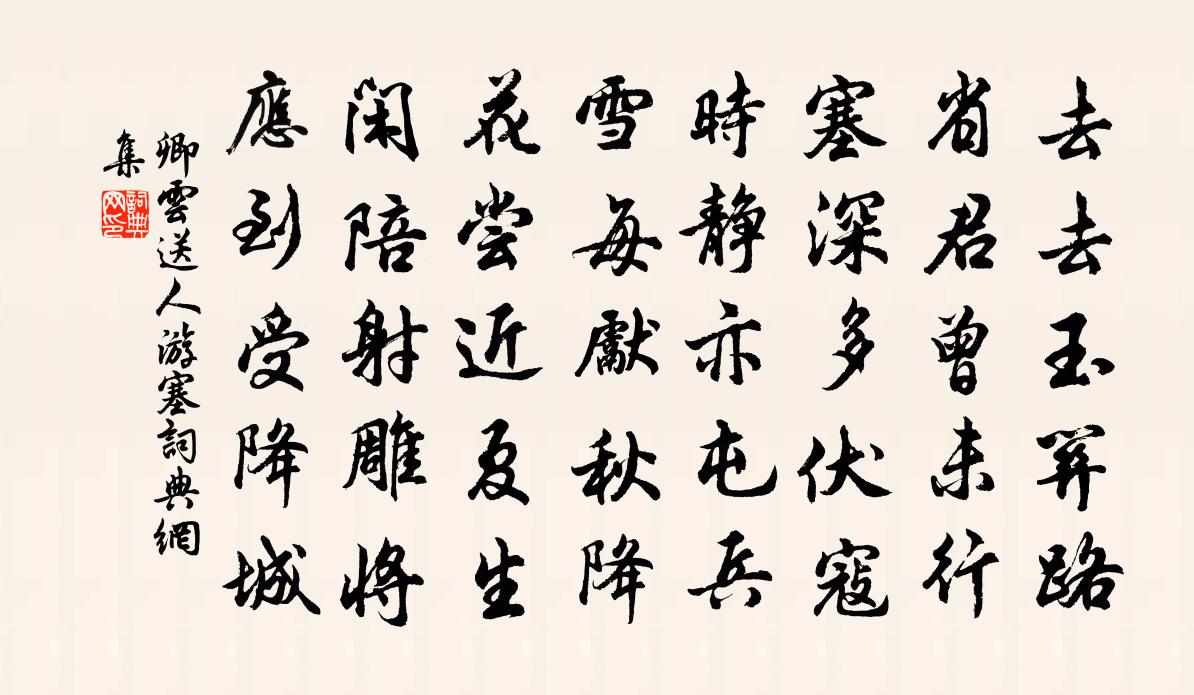 去去玉关路
省君曾未行
塞深多伏寇
時静亦屯兵
雪每獻秋降
花尝近夏生
闲陪射雕將
應到受降城
卿雲送人游塞詞典網
集
詞典
网印